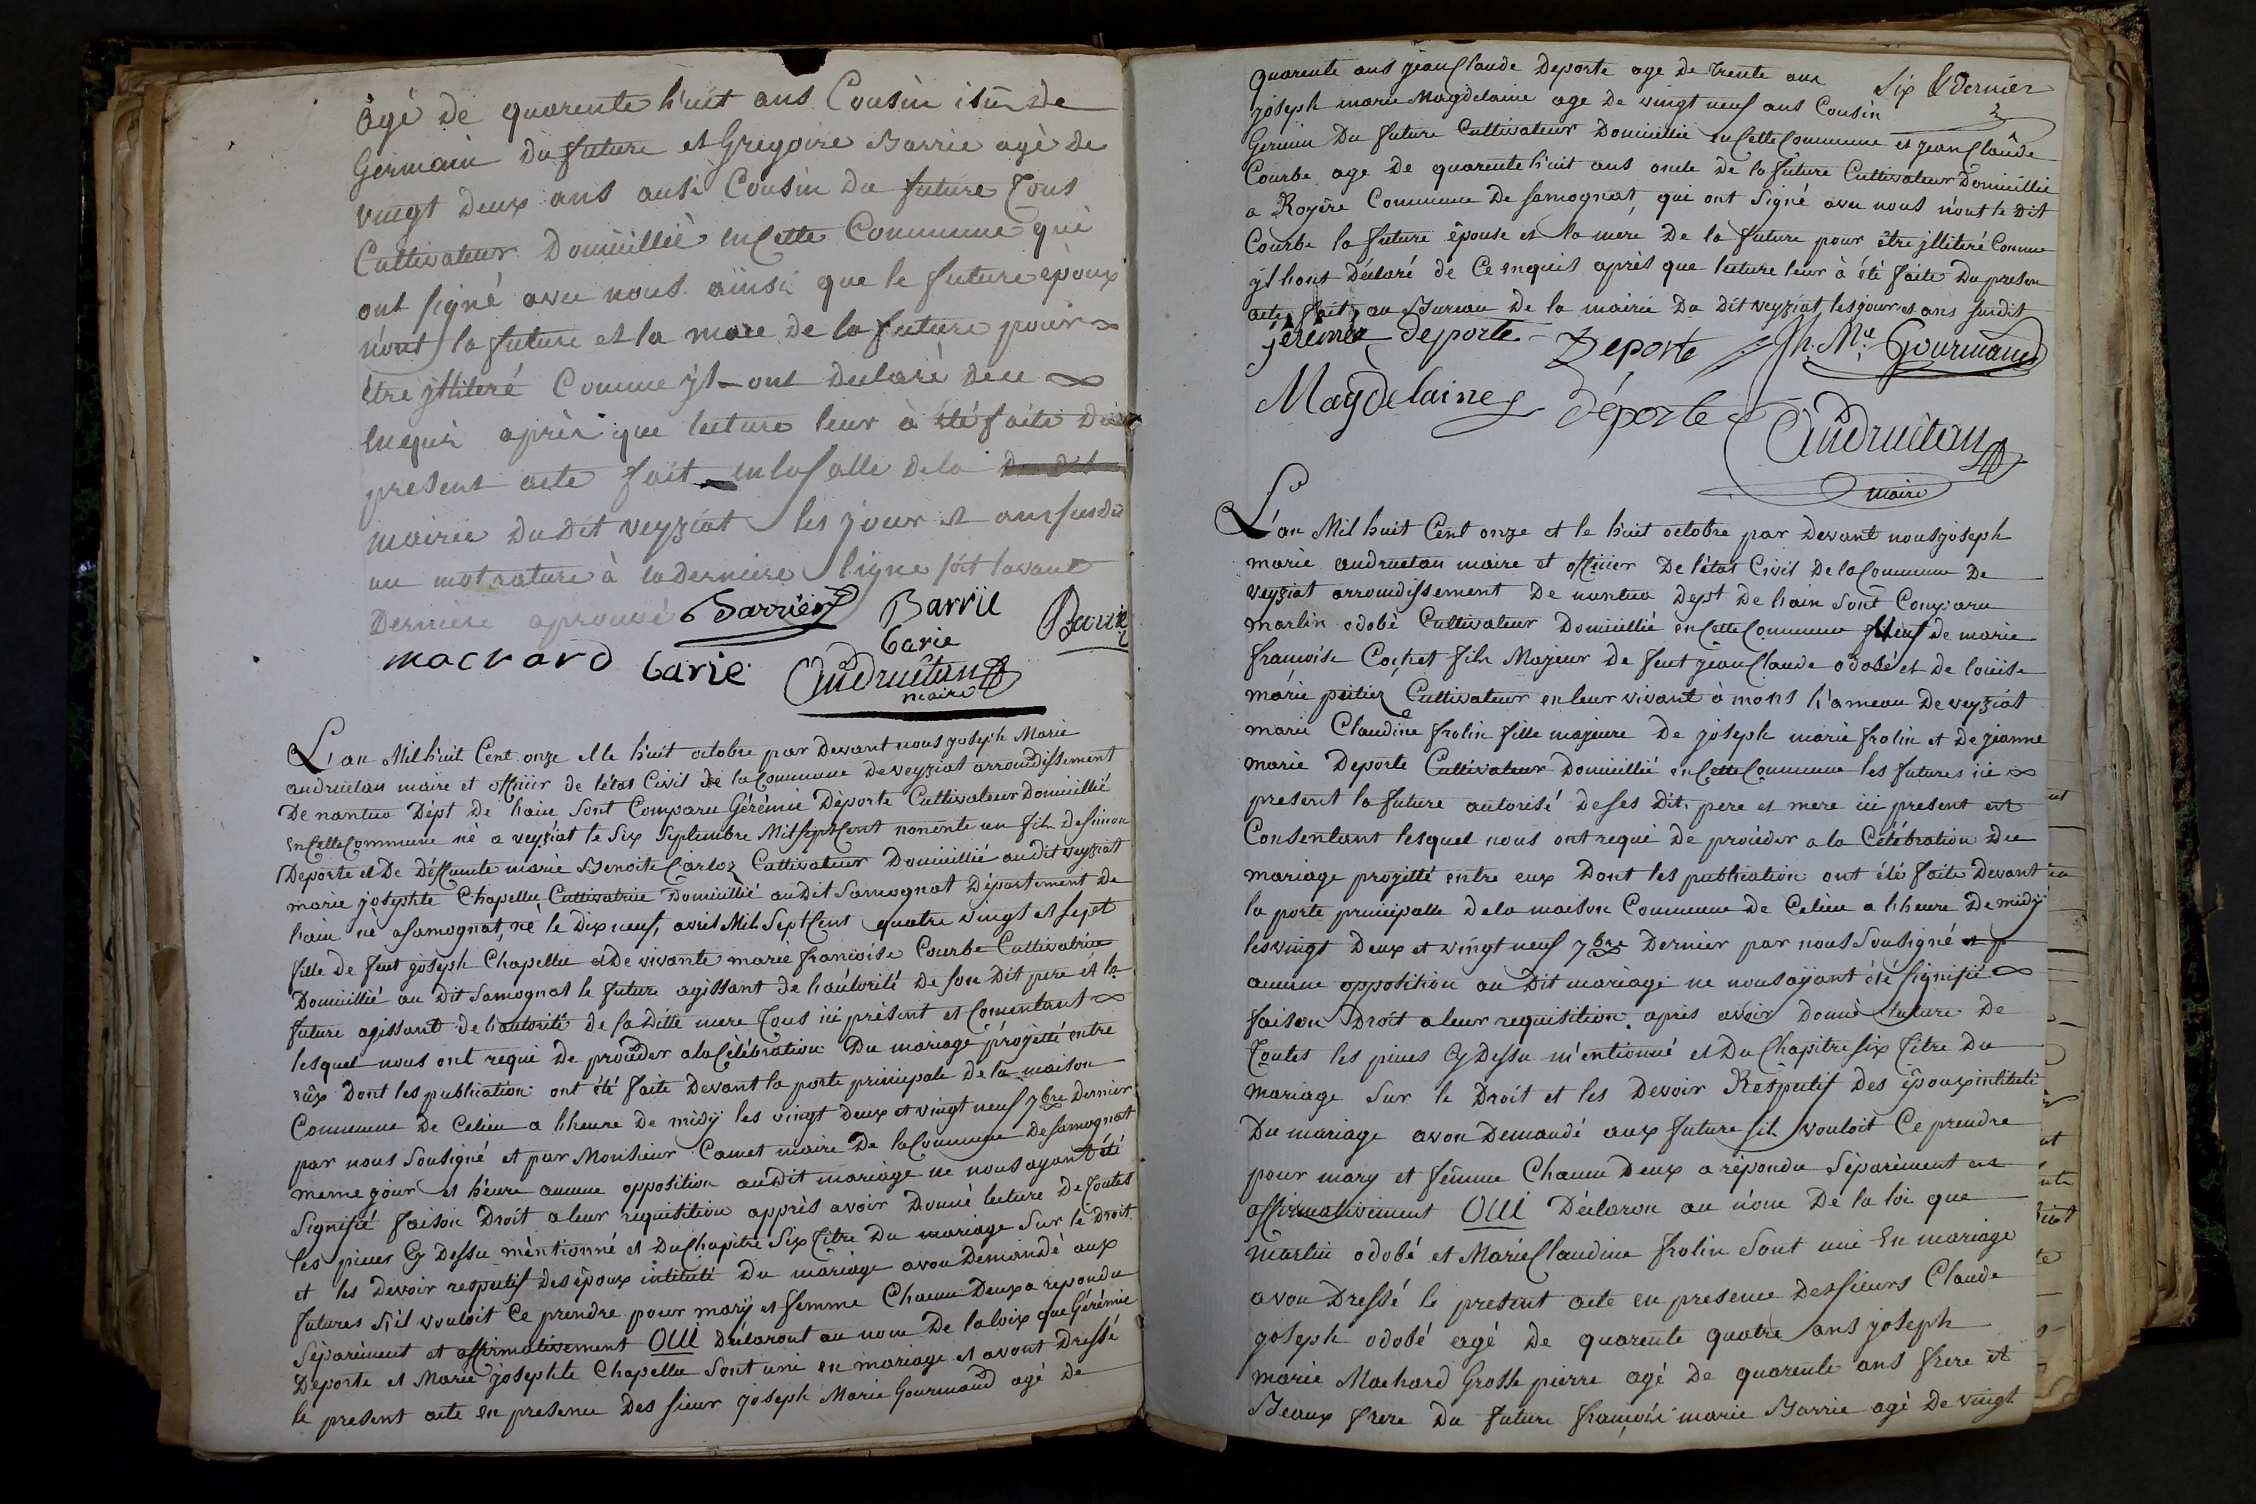 âgé de quarente h'uit ans Cousin isü de
Germain du future et Gregoire Barrie agé de
vingt deux ans ausi Cousin du future Tous
Cultivateur Domiciliié en Cette Commune qui
ont signé avec nous ainsi que le future époux
n'ont la future et la mere de la future pour
être jlliteré Comme yl ont declaré de ce
enquis après que lecture leur à été faite du
present acte fait en la Salle de la du dit
mairie du dit veyziat les jour et an susdit
un mot rature à la derniere ligne s avant
Derniere aprouvé Barrier Barrie Barrie
macrard barie barie Andruétan
maire
L'an Mil huit Cent onze et le huit octobre par devant nous joseph Marie
andruetan maire et officier de l'état Civil de la Commune de veyziat arrondissement
De nantua Dépt de l'ain sont Comparu Gérémie Déporte Cultivateur Domicillié
en Cette Commune né a veyziat le Six Septembre Mil sept Cent nonente un fils de simon
Deporte et De Deffunte marie Benoite Carloz Cultivateur Domicillié audit veyziat
marie josephte Chapellu Cultivatrice Domicillié audit Samognat Département de
l'ain né a Samognat, né le Dix neuf, avril Mil Sept Cent quatre vingt et sept
fille de feut joseph Chapellu et de vivante marie francoise Courbe Cultivatrice
Domicillié au dit Samognat le future agissant de l'autorité de son Dit pere et la
future agissant de l'autorité de sa ditte mere Tous ici présent et Consentant
lesquel nous ont requi de proceder a la Célébration Du mariage projetté entre
eûx Dont les publication ont été faite Devant la porte principale de la maison
Commune De Celieu a l'heure de midy les vingt deux et vingt neuf 7bre Dernier
par nous Sousigné et par Monsieur Camet maire De la Commune de Samognat
meme jour et heure aucune opposition audit mariage ne nous ayant été
Signifié faison Droit a leur requisition apprès avoir Donné lecture De Toutes
les pieces Cy Dessu mentionné et Du Chapitre Six Titre Du mariage Sur le Droit
et les Devoir respectif des époux intitulé Du mariage avon Demandé aux
futures s'il vouloit Ce prendre pour mary et femme Chacun Deux a repondu
Séparément et affirmativement OUI Déclaront au nom De la loix que Gérémie
Deporte et Marie josephte Chapellu Sont uni en mariage et avont Dressé
le present acte en presence Des sieur joseph Marie Gourmaud agé de
Quarente ans jean Claude Deporte age de Trente ans
joseph marie Magdelaine age de vingt neuf ans Cousin
Six & Dernier
Germin Du future Cultivateur Domicillié en Cette Commune et jean Claude
Courbe age De quarente h'uit ans oncle de la future Cultivateur Domicillié
a Royére Commune De Samognat, qui ont Signé avec nous n'ont le Dit
Courbe la future épouse et la mere De la future pour être jlliteré Comme
yl l'ont Déclaré de Ce enquis après que lecture leur à été faite Du presen
acte fait au Bureau De la mairie Du Dit veyziat les jour et ans susdit
jeremie deporte Deporte Jh. Mie Gourmand
Magdelaine déporte Andruétan
maire
L'an Mil huit Cent onze et le huit octobre par devant nous joseph
marie andruetan maire et officier De l'état Civil De la Commune De
veyziat arrondissement De nantua Dept De l'ain Sont Comparu
marlin odobé Cultivateur Domicillié en Cette Commune Veuf de marie
francoise Cochet fils Majeur De feut jean Claude odobé et De louise
marie peitiez Cultivateur en leur vivant à mons h'ameau De veyziat
marie Claudine frolin fille majeure De joseph marie frolin et De jeanne
marie Deporte Cultivateur Domicillié en Cette Commune les futures ici
present la future autorisé De ses Dit. pere et mere ici present et
Consentant lesquel nous ont requi De proceder a la Célébration Du
mariage projetté entre eux Dont les publication ont été faite Devant
la porte principalle De la maison Commune De Celieu a l'heure De midy
les vingt Deux et vingt neuf 7bre Dernier par nous Sousigné
aucune opposition au Dit mariage ne nous ayant été Signifié
faison Droit a leur requisition après avoir Donné lecture De
Toutes les pieces Cy Dessu m'entionné et Du Chapitre Six Titre Du
mariage Sur le Droit et les Devoir Respectif Des époux intitulé
Du mariage avon Demandé aux future sil vouloit Ce prendre
pour mary et femme Chacun Deux a répondu Séparément et
affirmativement OUI Déclaron au nom De la loi que
marlin odobé et Marie Claudine frolin Sont uni En mariage
avon Dressé le present acte en presence Des sieurs Claude
joseph odobé agé De quarente quatre ans joseph
marie Machard Grosse pierre agé De quarente ans frere et
Beaux frere Du future françois marie Barrie agé De vingt